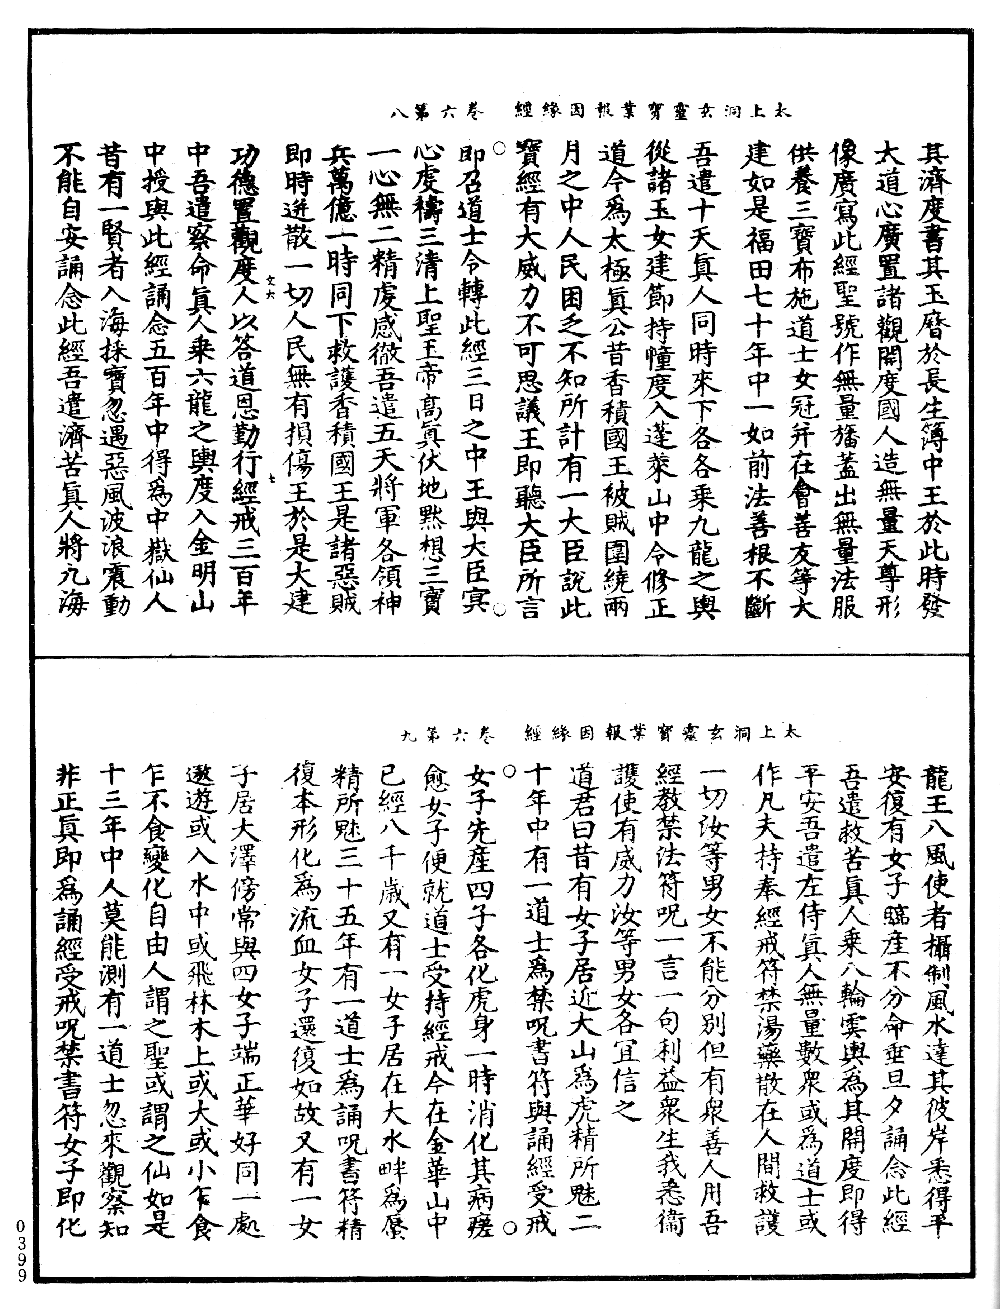 太上洞玄靈寶業報因緣經　卷六　第八
其濟度書其玉曆於長生簿中王於此時發
大道心廣置諸觀開度國人造無量天尊形
像廣寫此經聖號作無量旛蓋出無量法服
供養三寶布施道士女冠并在會善友等大
建如是福田七十年中一如前法善根不斷
吾遣十天真人同時來下各各乘九龍之輿
從諸玉女建節持幢度入蓬萊山中令修正
道今為太極真公昔香積國王被賊圍繞兩
月之中人民困乏不知所計有一大臣說此
寶經有大威力不可思議王即聽大臣所言
即召道士令轉此經三日之中王與大臣冥
心虔禱三清上聖玉帝高真伏地黙想三寶
一心無二精虔感徹吾遣五天將軍各領神
兵萬億一時同下救護香積國王是諸惡賊
即時迸散一切人民無有損傷王於是大建
文六　七
功德置觀度人以答道恩勤行經戒三百年
中吾遣察命真人乘六龍之輿度入金明山
中授與此經誦念五百年中得為中嶽仙人
昔有一賢者入海採寶忽遇惡風波浪震動
不能自安誦念此經吾遣濟苦真人將九海
太上洞玄靈寶業報因緣經　卷六　第九
龍王八風使者攝制風水達其彼岸悉得平
安復有女子臨產不分命垂旦夕誦念此經
吾遣救苦真人乘八輪雲輿為其開度即得
平安吾遣左侍真人無量數眾或為道士或
作凡夫持奉經戒符禁湯藥散在人間救護
一切汝等男女不能分別但有眾善人用吾
經教禁法符呪一言一句利益眾生我悉衛
護使有威力汝等男女各宜信之
道君曰昔有女子居近大山為虎精所魅二
十年中有一道士為禁呪書符與誦經受戒
女子先產四子各化虎身一時消化其病瘥
愈女子便就道士受持經戒今在金華山中
已經八千歲又有一女子居在大水畔為蜃
精所魅三十五年有一道士為誦呪書符精
復本形化為流血女子還復如故又有一女
子居大澤傍常與四女子端正華好同一處
遨遊或入水中或飛林木上或大或小乍食
乍不食變化自由人謂之聖或謂之仙如是
十三年中人莫能測有一道士忽來觀察知
非正真即為誦經受戒呪禁書符女子即化
0399